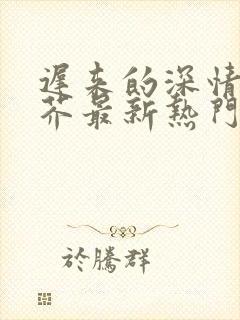 遲来的深情
芥最新熱門
於騰群